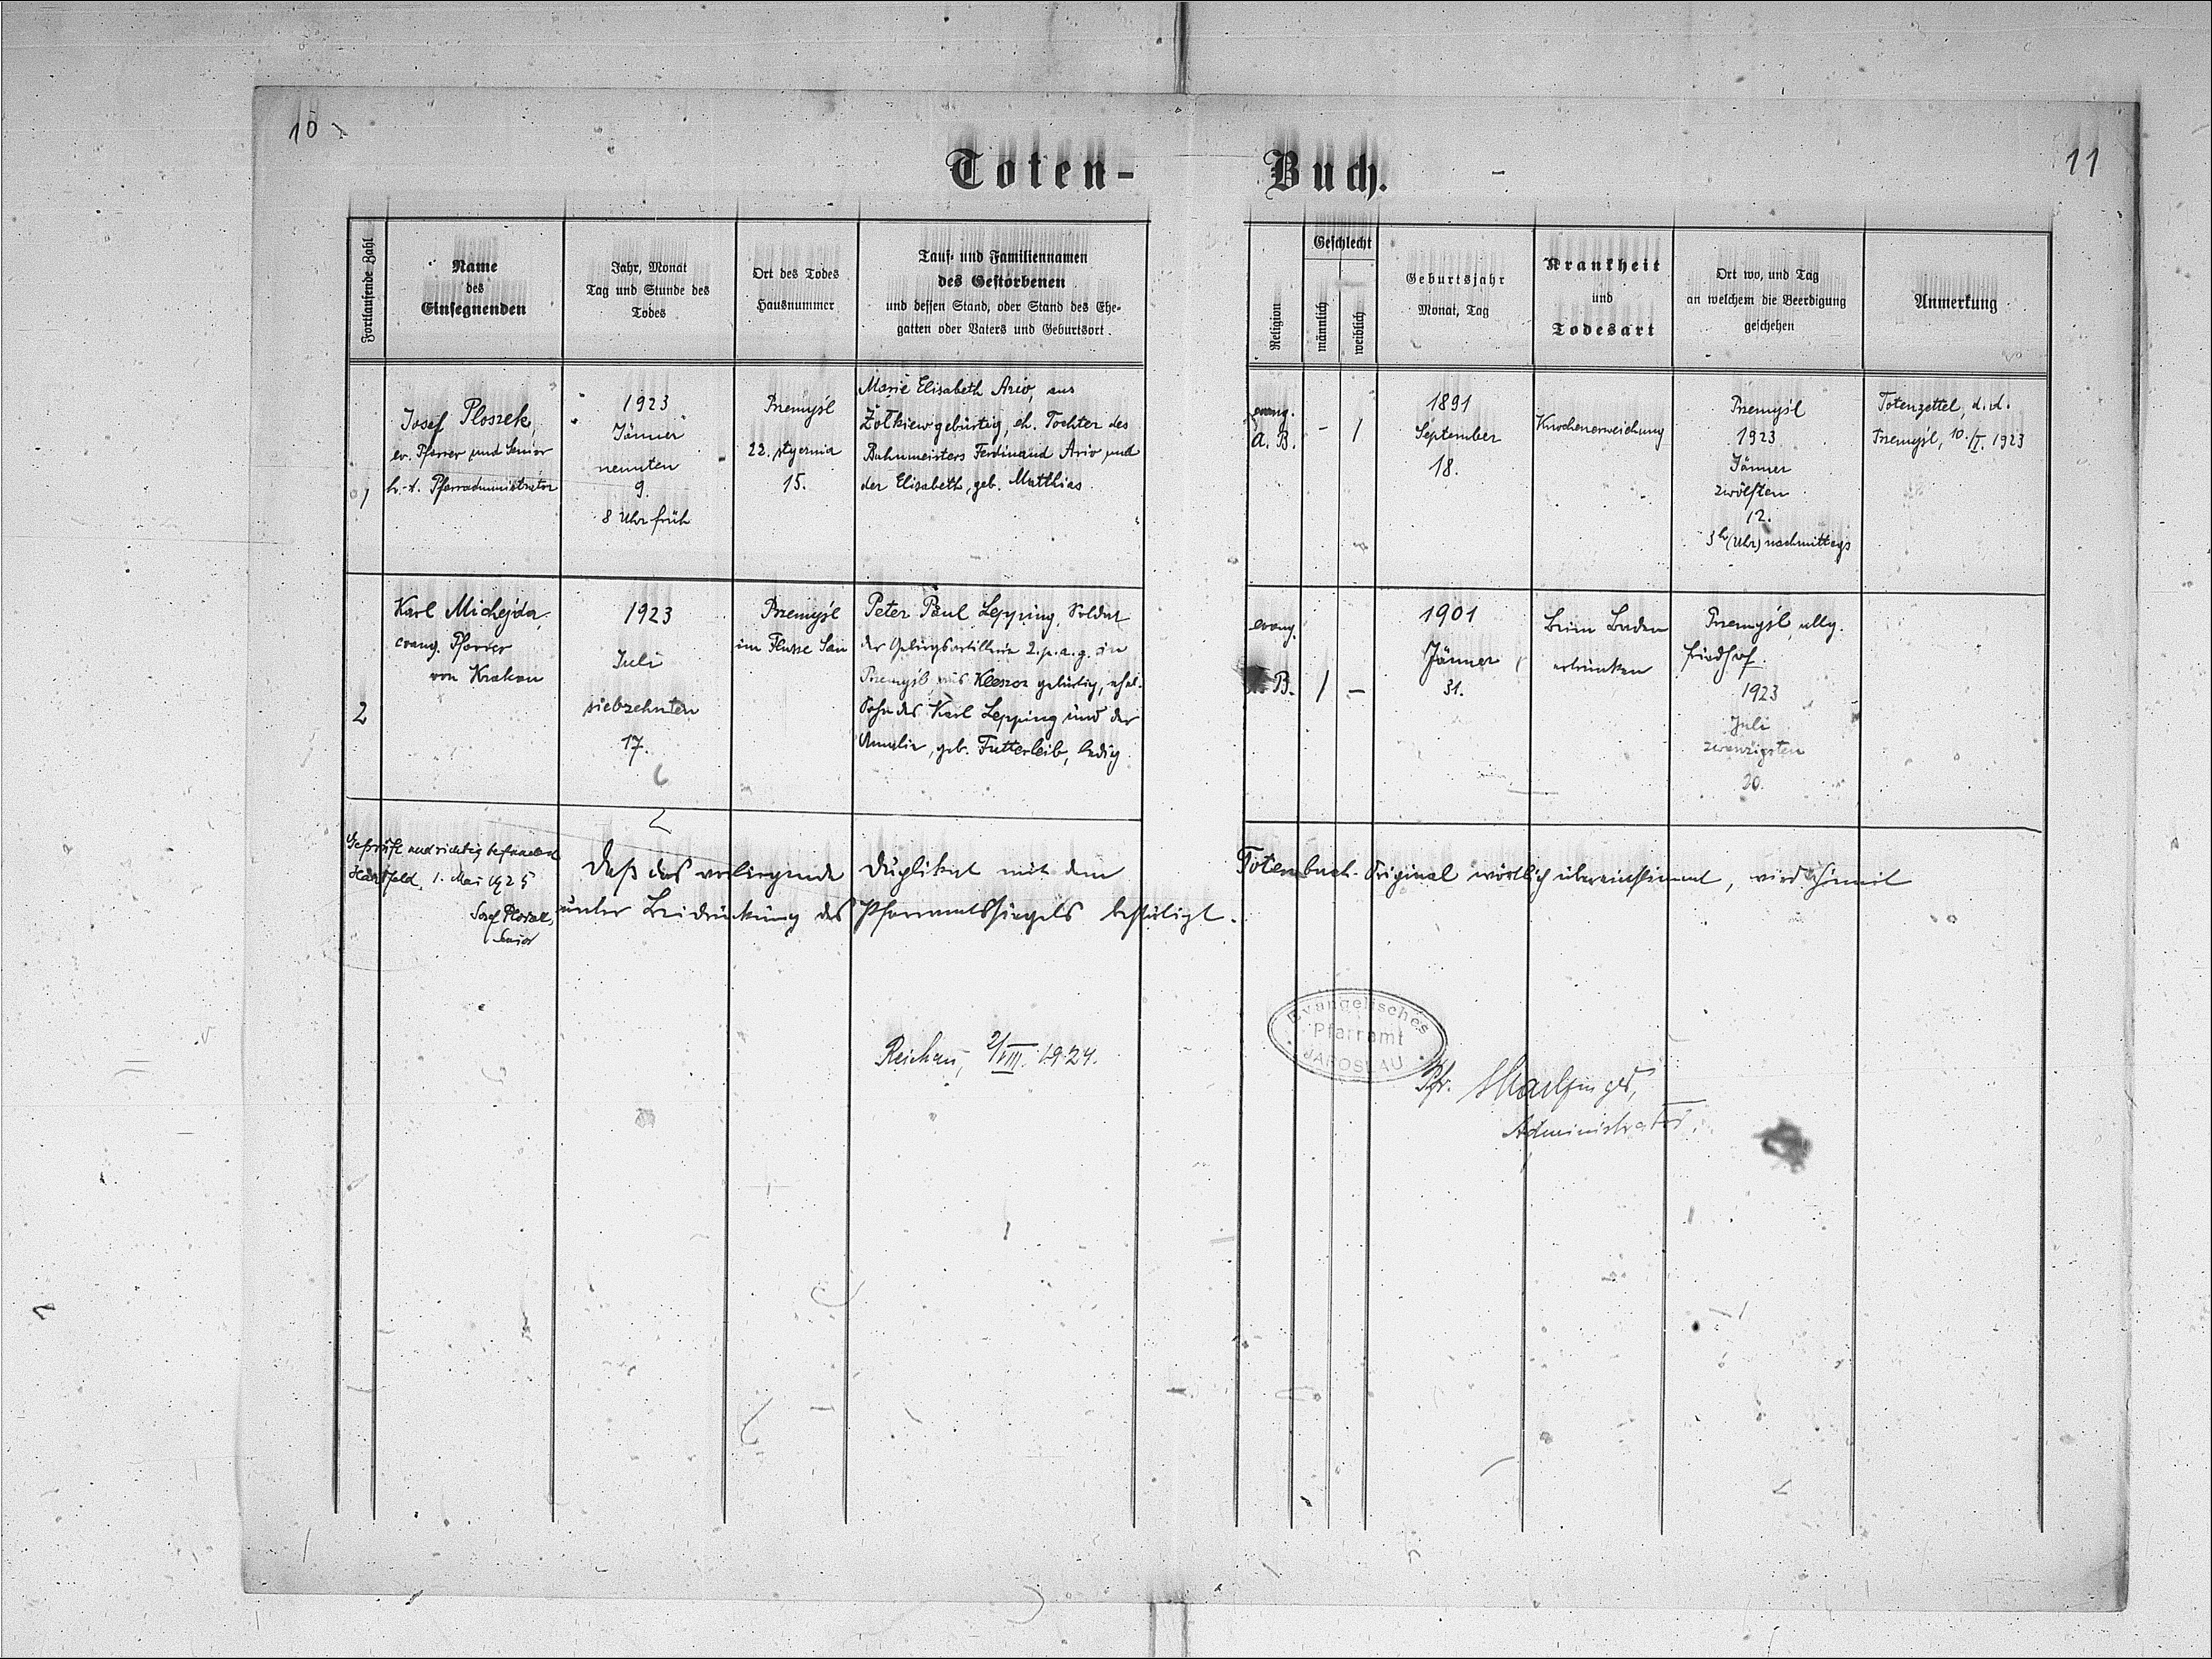 10
11
Toten-
Buch.
Fortlaufende Zahl
Name
des
Einsegnenden
Jahr, Monat
Tag und Stunde des
Todes
Ort des Todes
Hausnummer
Tauf- und Familiennamen
des Gestorbenen
und dessen Stand, oder Stand des Ehe-
gatten oder Vaters und Geburtsort.
Religion
Geschlecht
männlich
weiblich
Geburtsjahr
Monat, Tag
Krankheit
und
Todesart
Ort wo, und Tag
an welchem die Beerdigung
geschehen
Anmerkung
1
Josef Ploszek,
ev. Pfarrer und Senior
h.-t. Pfarradministrator
1923
Jänner
neunten
9.
8 Uhr früh
Przemyśl
22. stycznia
15.
Marie Elisabeth Ario, aus
Żółkiew gebürtig, eh. Tochter des
Bahnmeisters Ferdinand Ario und
der Elisabeth, geb. Matthias.
evang.
A. B.
-
1
1891
September
18.
Knochenerweichung
Przemyśl
1923
Jänner
zwölften
12.
3h (Uhr) nachmittags
Totenzettel, d. d.
Przemyśl, 10./I. 1923
2
Karl Michejda,
evang. Pfarrer
von Krakau
1923
Juli
siebzehnten
17.
Przemyśl
im Flusse San
Peter Paul Lepping, Soldat
der Gebirgsartillerie 2. p. a. g. in
Przemyśl, aus gebürtig, ehel.
Sohn des Karl Lepping und der
Amalie, geb. Futterleib, ledig
evang.
B.
1
-
1901
Jänner
31.
Beim Baden
ertrunken
Przemyśl, allg.
Friedhof.
1923
Juli
zwanzigsten
20.
Geprüft und richtig befunden
Hartfeld, 1. Mai 1925
Josef Ploszek,
Senior
Daß das vorliegende Duplikat mit dem Totenbuch-Original wörtlich übereinstimmt, wird hiemit
unter Beidrückung des Pfarramtssiegels bestätigt.
Reichau, 2/VIII. 1924.
Evangelisches
Pfarramt
JAROSLAU
Pfr.
Administrator.